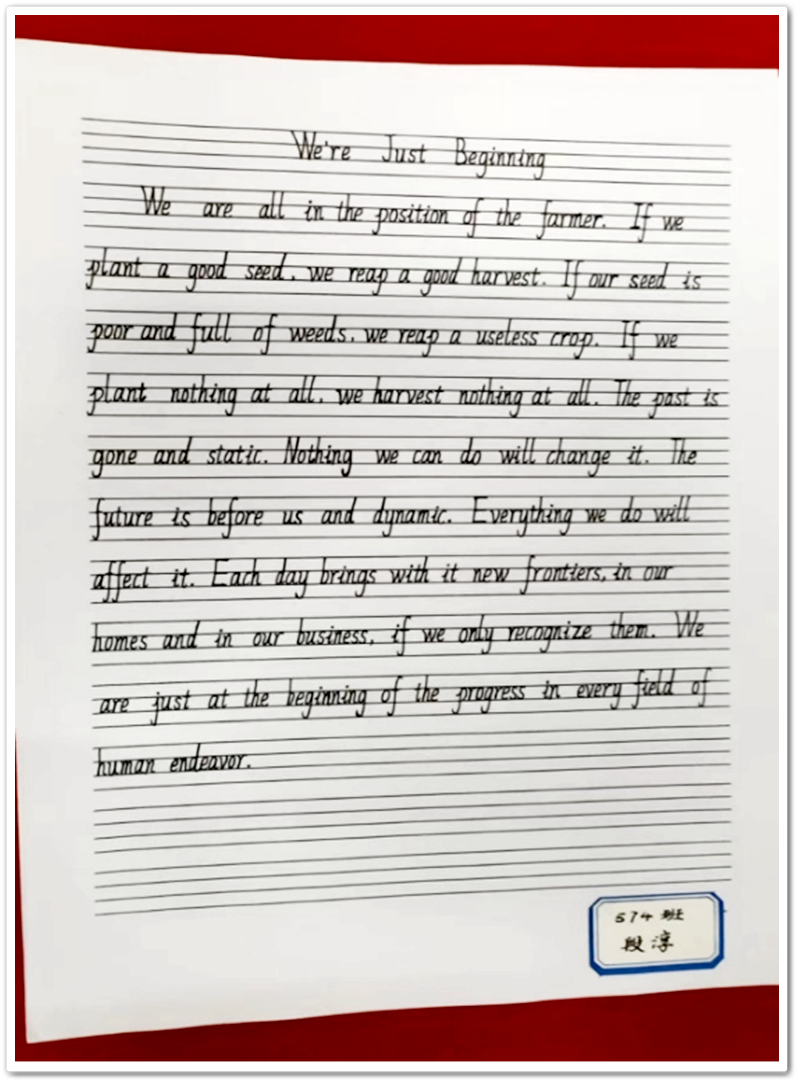 We're Just Beginning
We are all in the position of the farmer. If we
plant a good seed, we reap a good harvest. If our seed is
poor and full of weeds, we reap a useless crop. If we
plant nothing at all, we harvest nothing at all. The past is
gone and static. Nothing we can do will change it. The
future is before us and dynamic. Everything we do will
affect it. Each day brings with it new frontiers, in our
homes and in our business, if we only recognize them. We
are just at the beginning of the progress in every field of
human endeavor.
574班
段淳